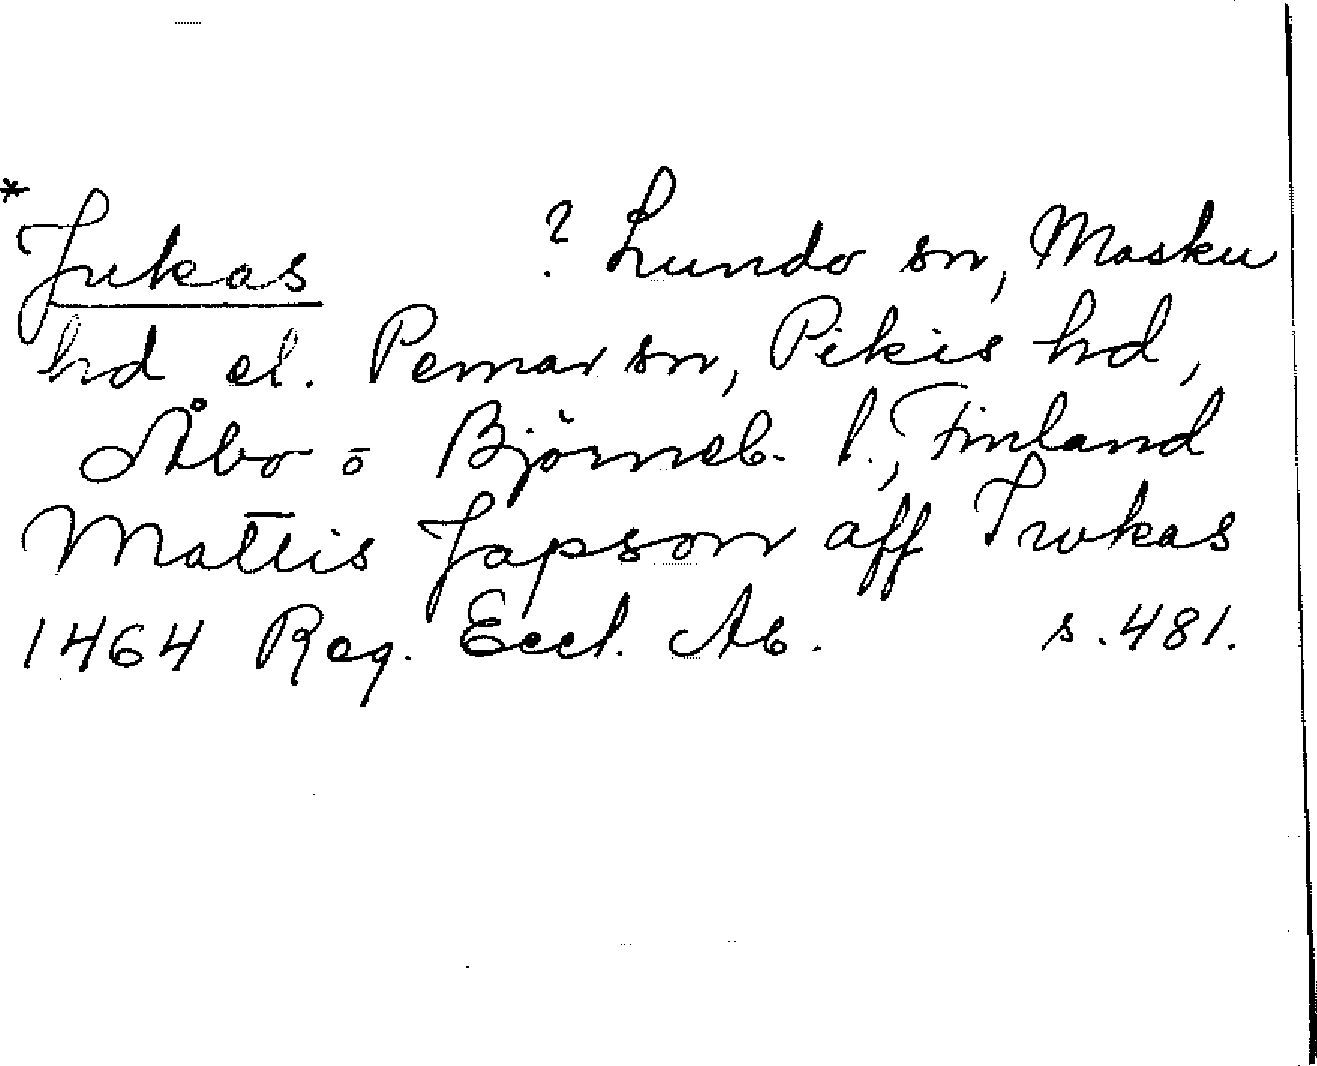 * Jukas ? Lundo sn, Masku
hd el. Pemar sn, Pikis hd,
Åbo o Björneb. l., Finland
Mattis Japson aff Iwkas
1464 Reg. Eccl. Ab. s. 481.